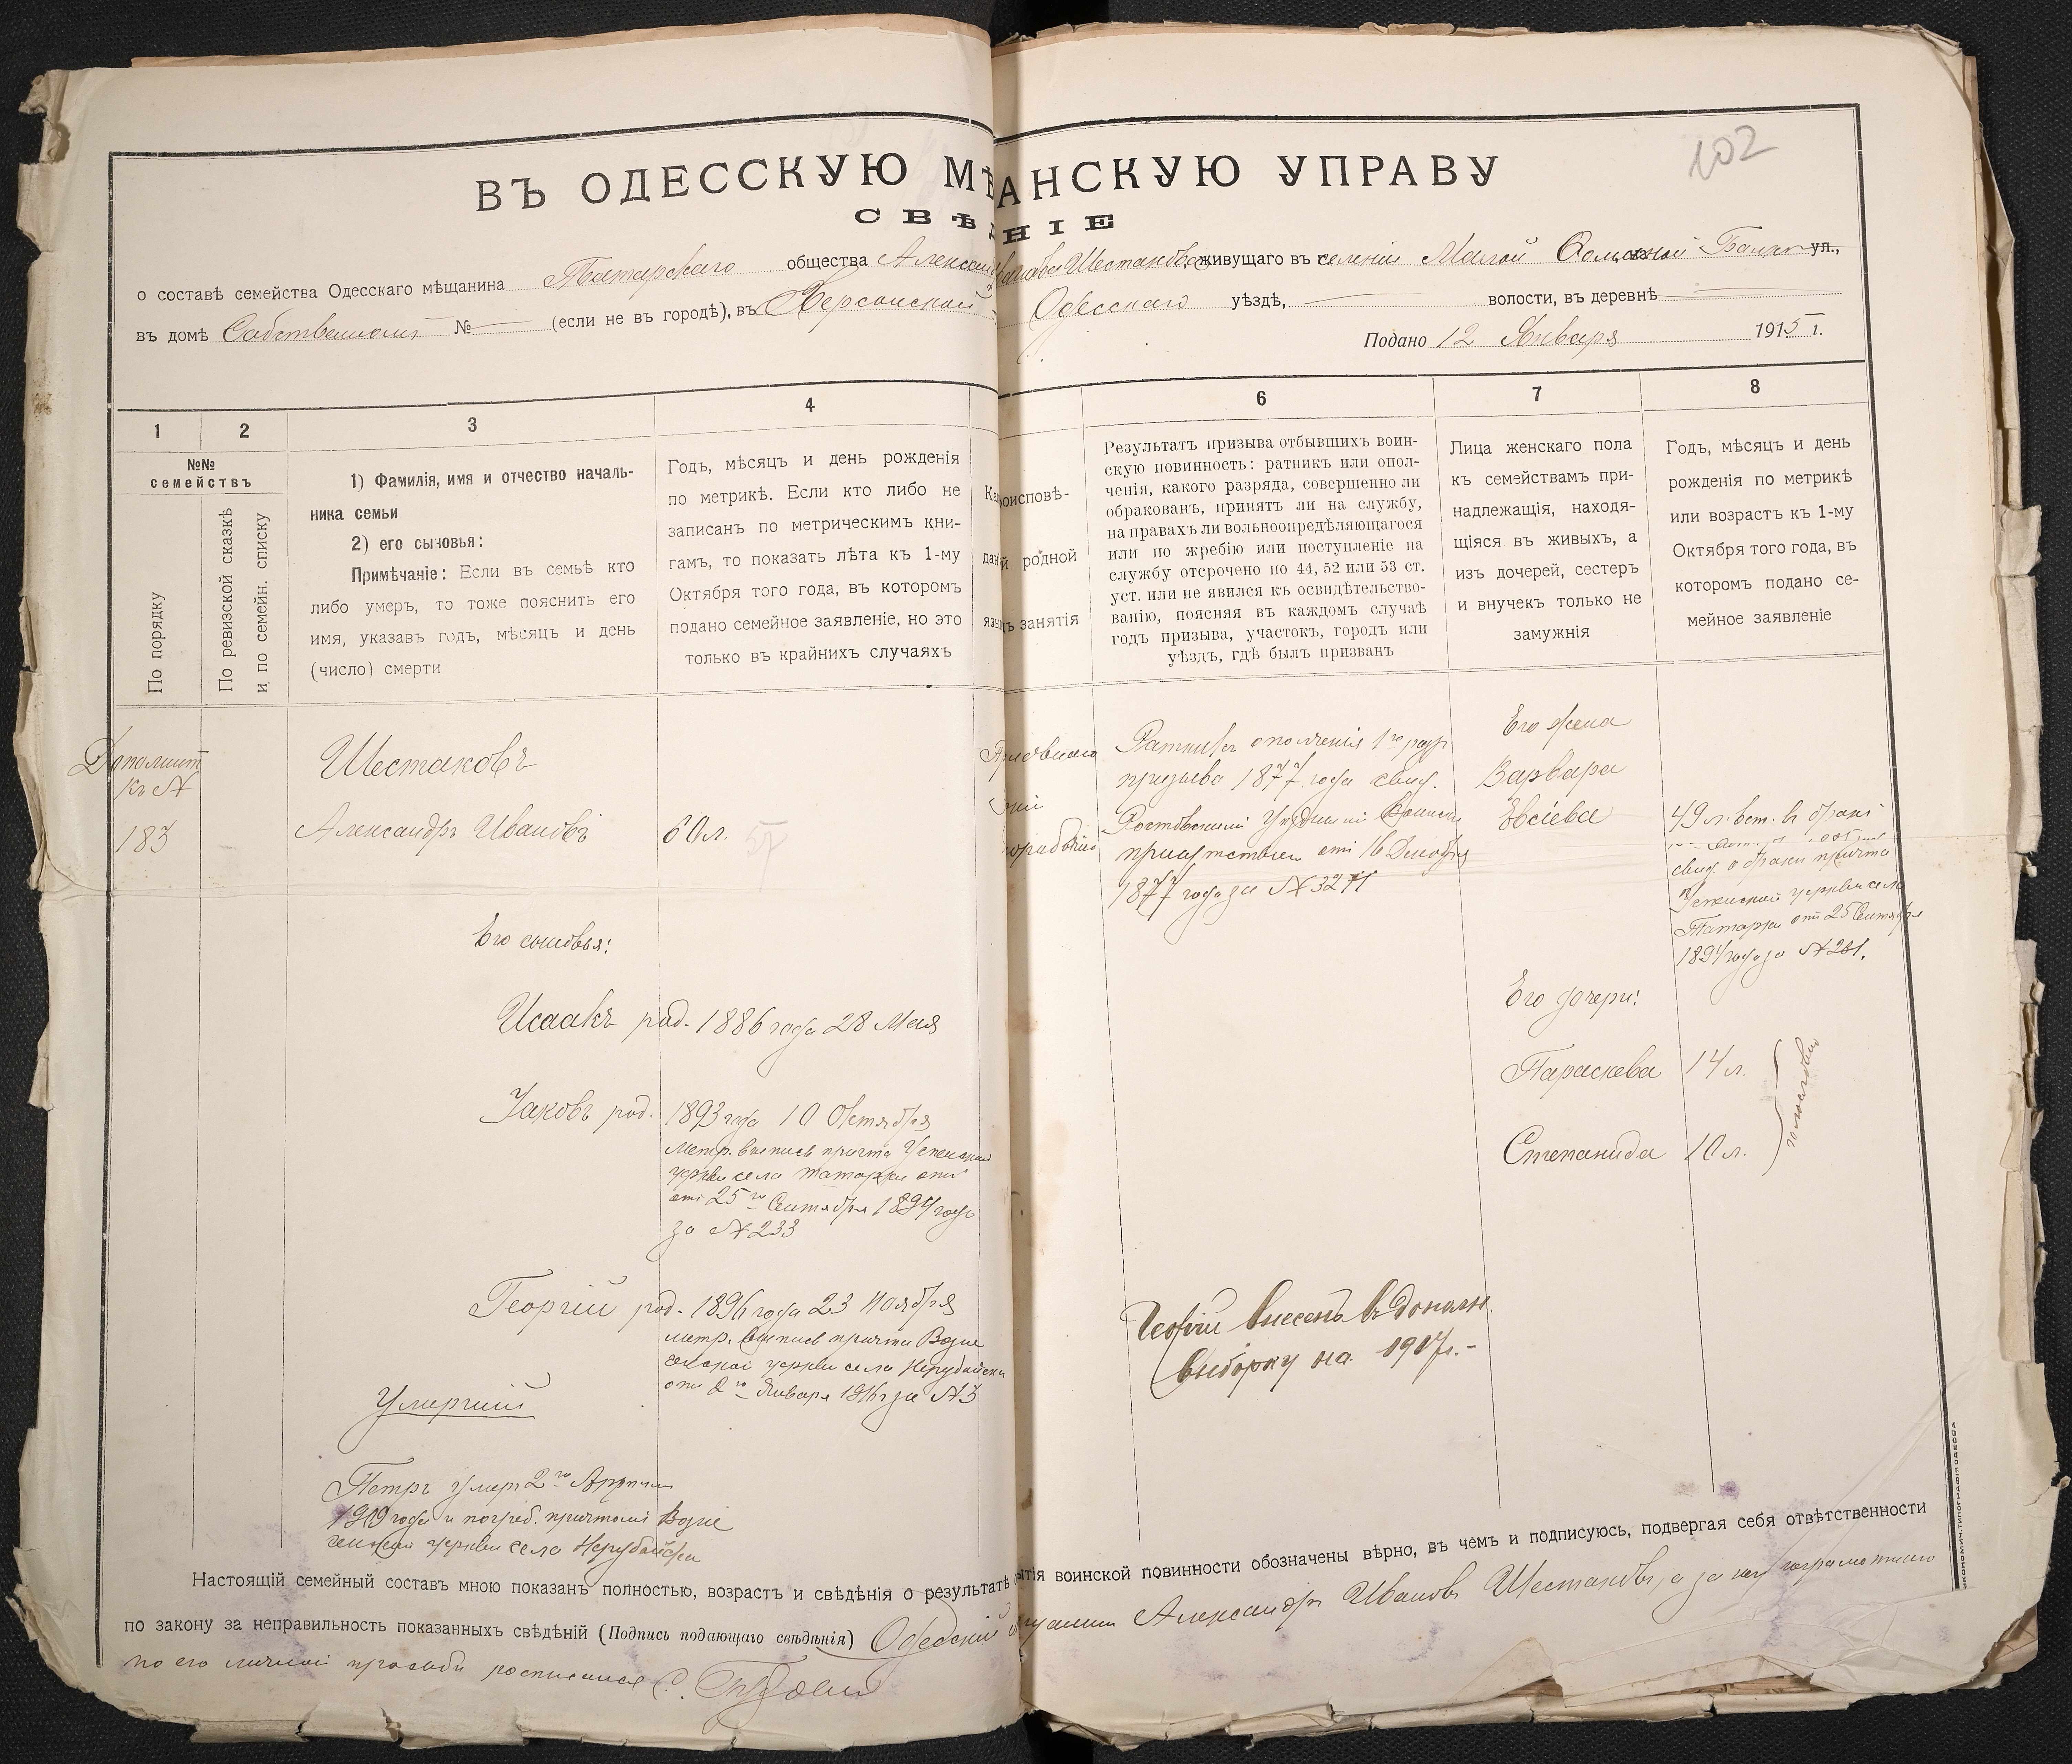 102
ВЪ ОДЕССКУЮ МѢ АНСКУЮ УПРАВУ
СВѢД НІЕ
о составѣ семейства Одесскаго мѣщанина Татарскаго общества Александ Иванова Шестакова, живущаго въ селеніи Малой Балки ул.,
въ домѣ Собственномъ № — (если не въ городѣ), въ Херсонской г Одесскаго уѣздѣ, — волости, въ деревнѣ —
Подано 12 Января 1915 г.
1
2
3
4
6
7
8
№№
семействъ
По порядку
По ревизской сказкѣ
и по семейн. списку
1) Фамилія, имя и отчество началь-
ника семьи
2) его сыновья:
Примѣчаніе: Если въ семьѣ кто
либо умеръ, то тоже пояснить его
имя, указавъ годъ, мѣсяцъ и день
(число) смерти
Годъ, мѣсяцъ и день рожденія
по метрикѣ. Если кто либо не
записанъ по метрическимъ кни-
гамъ, то показать лѣта къ 1-му
Октября того года, въ которомъ
подано семейное заявленіе, но это
только въ крайнихъ случаяхъ
Ка оисповѣ-
дані й родной
язы ъ занятія
Результатъ призыва отбывшихъ воин-
скую повинность: ратникъ или опол-
ченія, какого разряда, совершенно ли
обракованъ, принятъ ли на службу,
на правахъ ли вольноопредѣляющагося
или по жребію или поступленіе на
службу отсрочено по 44, 52 или 53 ст.
уст. или не явился къ освидѣтельство-
ванію, поясняя въ каждомъ случаѣ
годъ призыва, участокъ, городъ или
уѣздъ, гдѣ былъ призванъ
Лица женскаго пола
къ семействамъ при-
надлежащія, находя-
щіяся въ живыхъ, а
изъ дочерей, сестеръ
и внучекъ только не
замужнія
Годъ, мѣсяцъ и день
рожденія по метрикѣ
или возрастъ къ 1-му
Октября того года, въ
которомъ подано се-
мейное заявленіе
Дополнит
къ №
183
Шестаковъ
Александръ Ивановъ
60 л.
57
Ратникъ ополченія 1го разр
призыва 1877 года свид.
Ростовскимъ Уѣзднымъ Воинск
присутствіем отъ 16 Декабря
1877 года за № 3271
Его жена
Варвара
Евсіева
49 л. вст. въ бракъ
свид. о бракѣ причта
Успенской церкви села
Татарки отъ 25 Сентября
1894 года за № 281.
Его сыновья:
Исаакъ род. 1886 года 28 Мая
Яковъ род. 1893 года 10 Октября
Метр. выпись причта Успенской
церкви села Татарки отъ
отъ 25го Сентября 1894 года
за № 233
Георгій род. 1896 года 23 Ноября
метр. выпись причта Возне
сенской церкви села Нерубайска
отъ 2го Января за № 3
Его дочери:
Параскева 14 л.
Степанида 10 л.
Георгій внесенъ въ дополн.
выборку на 1917 г. -
Умершій
Петръ умеръ 2го Апрѣля
1909 года и погреб. причтомъ Возне
сенской церкви села Нерубайска
Настоящій семейный составъ мною показанъ полностью, возрастъ и свѣдѣнія о результатѣ ытія воинской повинности обозначены вѣрно, въ чемъ и подписуюсь, подвергая себя отвѣтственности
по закону за неправильность показанныхъ свѣдѣній (Подпись подающаго свѣдѣнія) Одесскій мѣщанинъ Александръ Ивановъ Шестаковъ, а за него неграмотнаго
по его личной просьбѣ росписался
ЭКОНОМИЧ. ТИПОГРАФІЯ ОДЕССА